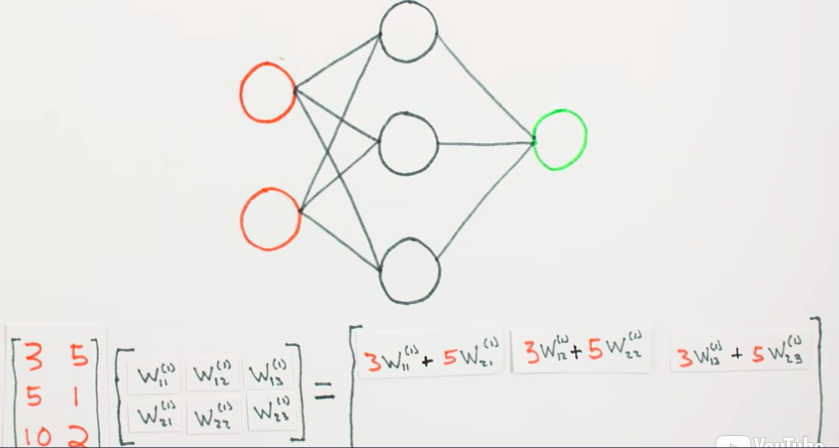 3 5
5 1
10 2
W₁₁⁽¹⁾ W₁₂⁽¹⁾ W₁₃⁽¹⁾
W₂₁⁽¹⁾ W₂₂⁽¹⁾ W₂₃⁽¹⁾
=
3W₁₁⁽¹⁾ + 5W₂₁⁽¹⁾ 3W₁₂⁽¹⁾ + 5W₂₂⁽¹⁾ 3W₁₃⁽¹⁾ + 5W₂₃⁽¹⁾
YouTube